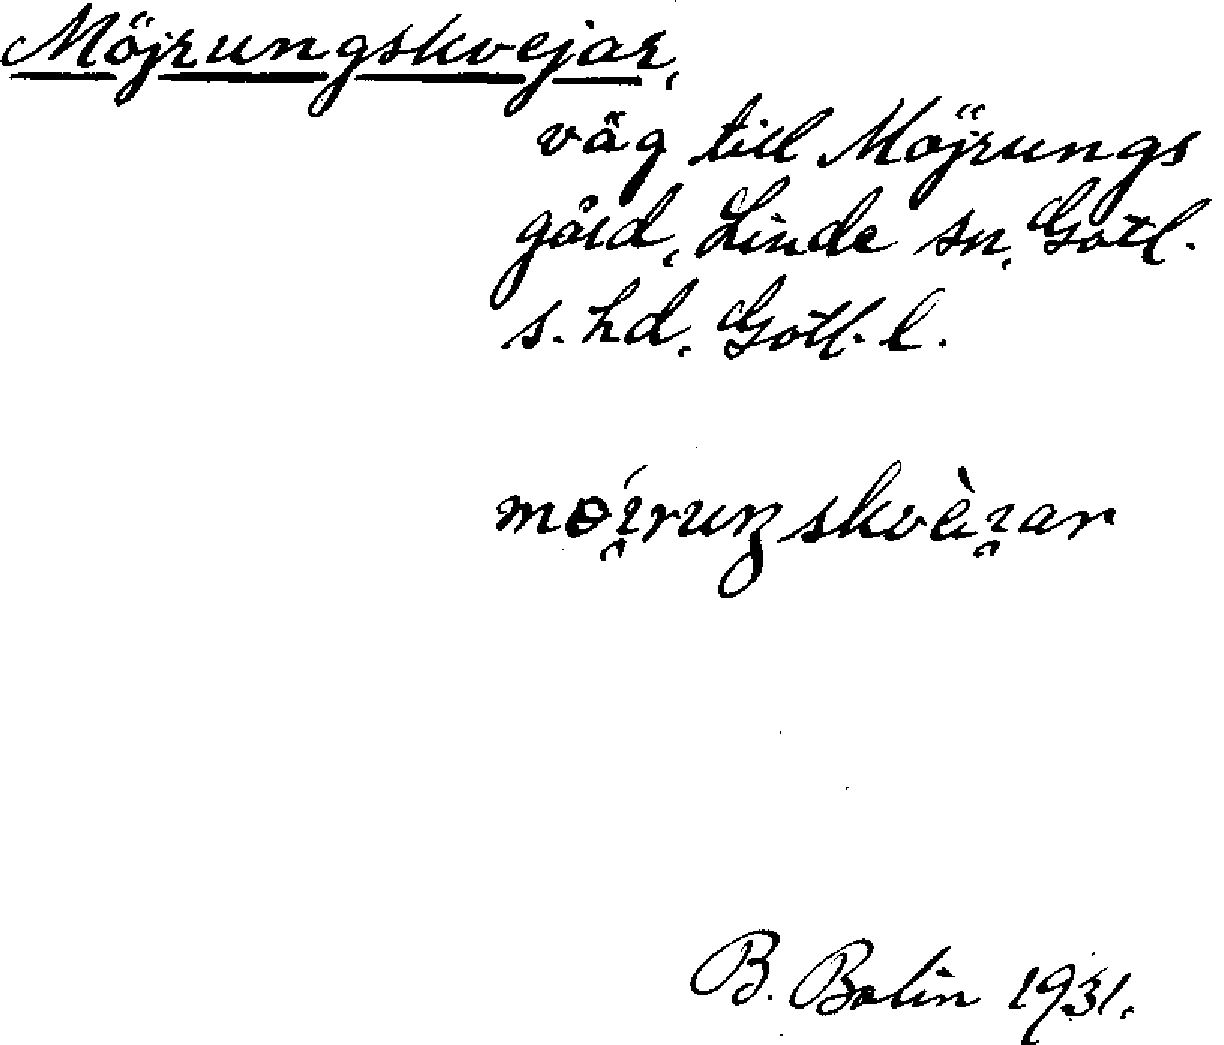 Möjrungskvejar,
väg till Möjrungs
gård, Linde sn, Gotl.
s. hd, Gotl. l.
mɵ́i̯ruŋskvèi̯ar
B. Bolin 1931.